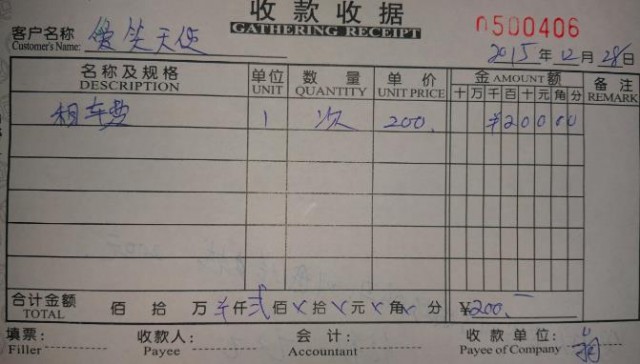 收款收据
GATHERING RECEIPT
0500406
客户名称 爱笑天使
Customer's Name:
2015年12月28日
名称及规格 单位 数量 单价 金AMOUNT额 备注
DESCRIPTION UNIT QUANTITY UNIT PRICE 十万千百十元角分 REMARK
租车费 1 次 200. ¥20000
合计金额 佰 拾 万 ¥仟 贰佰 X拾 X元 X角 X分 ¥200.-
TOTAL
填票: 收款人: 会计: 收款单位:
Filler Payee Accountant Payee of Company